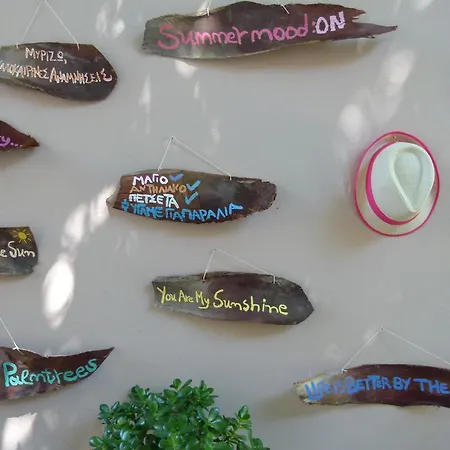 Summer mood: ON
ΜΥΡΙΖΩ,
ΚΑΛΟΚΑΙΡΙΝΕΣ ΑΝΑΜΝΗΣΕΙΣ
ΜΑΓΙΟ ✓
ΑΝΤΗΛΙΑΚΟ ✓
ΠΕΤΣΕΤΑ ✓
#ΥΠΑΜΕΓΙΑΠΑΡΑΛΙΑ
Sun
You Are My Sunshine
Palmtrees
LIFE IS BETTER BY THE